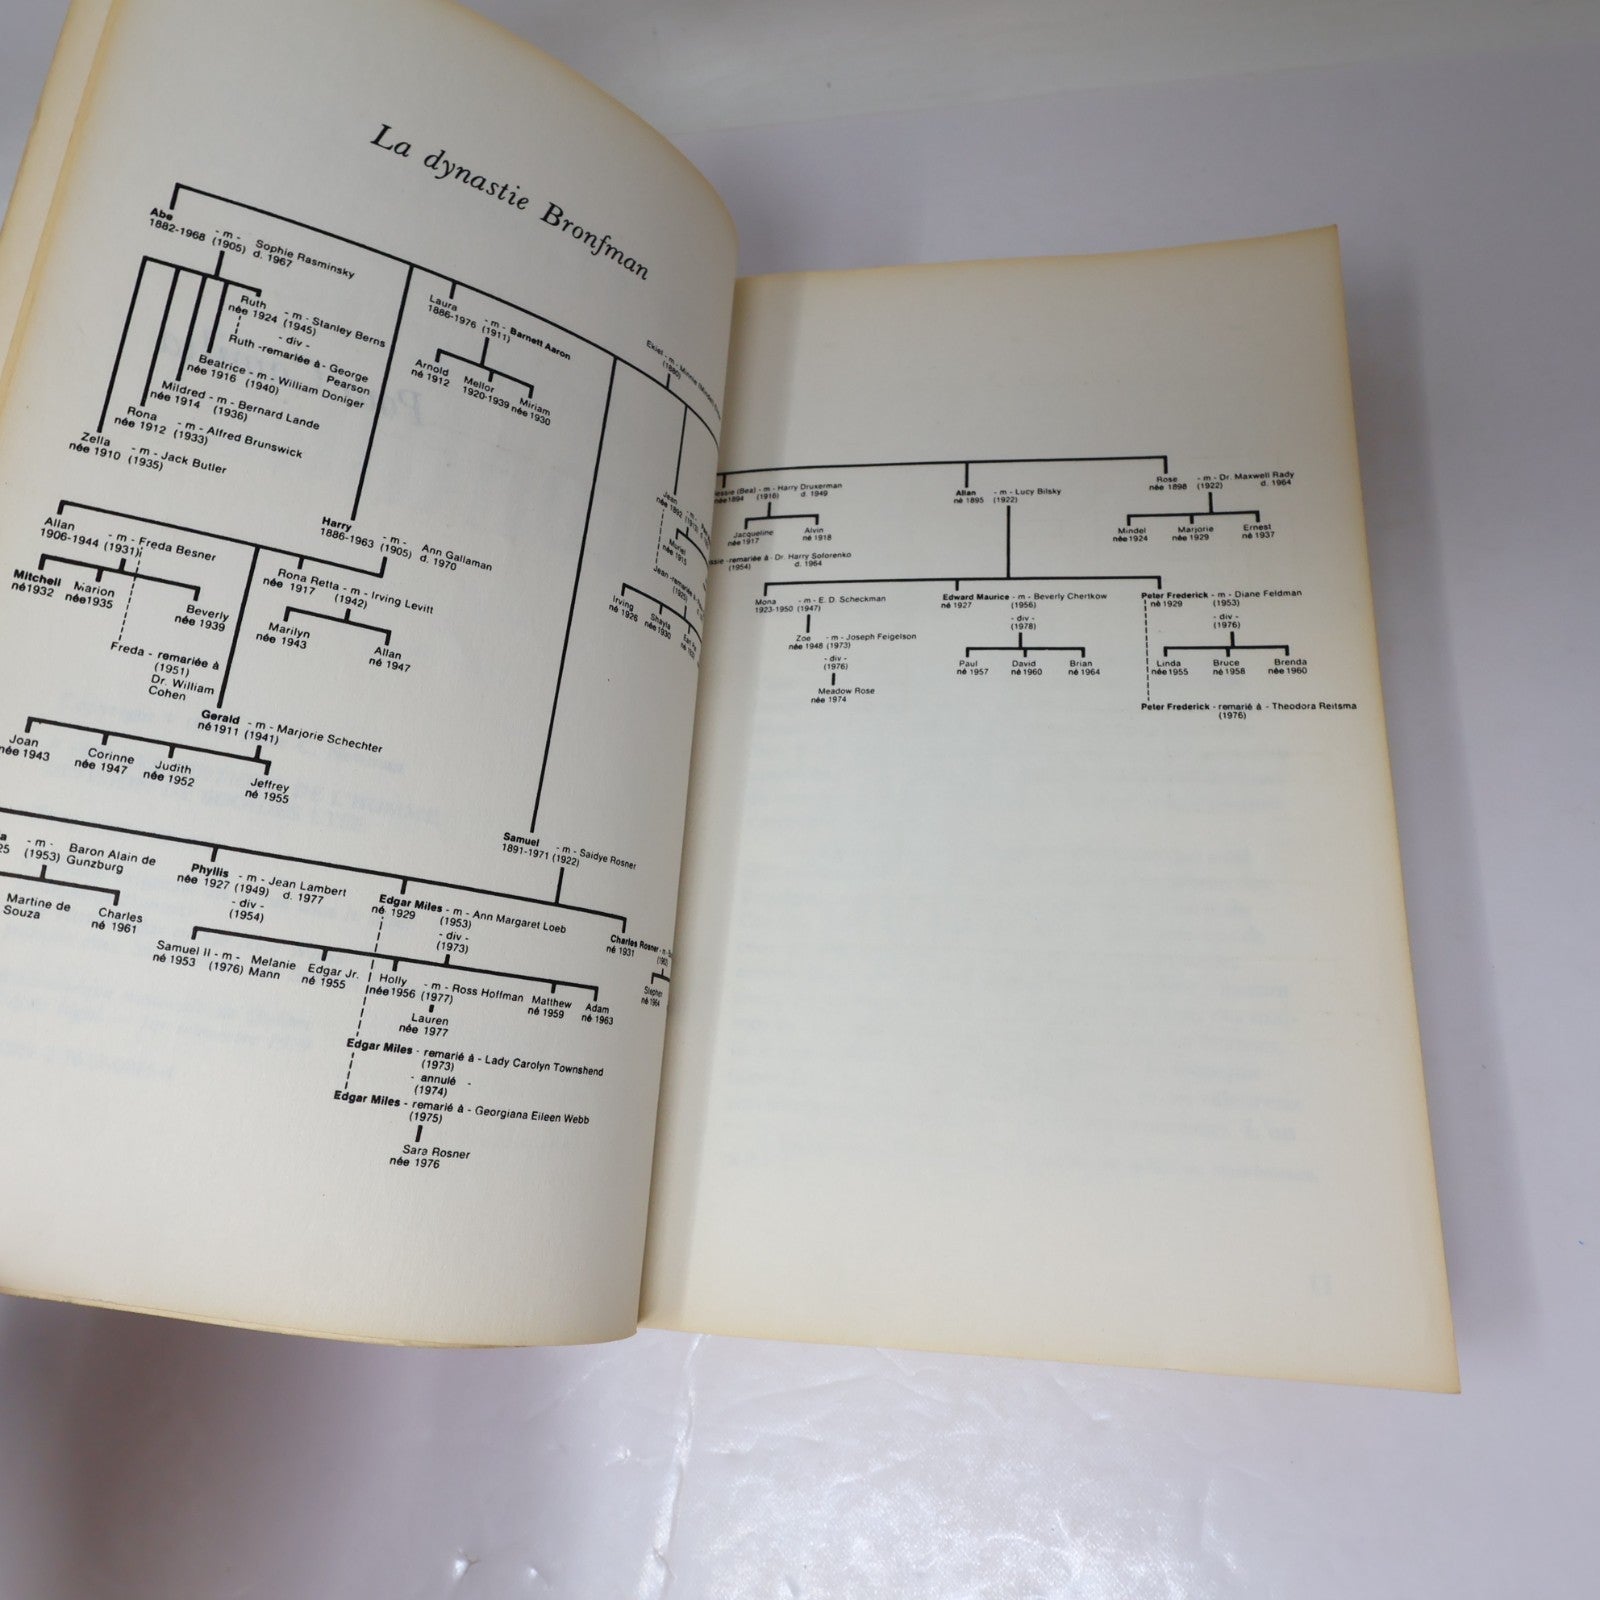 La dynastie Bronfman
Abe
1882-1968
- m -
(1905)
Sophie Rasminsky
d. 1967
Ruth
née 1924
- m - Stanley Berns
(1945)
- div -
Ruth - remariée à - George
Pearson
Beatrice - m - William Doniger
née 1916 (1940)
Mildred - m - Bernard Lande
née 1914 (1936)
Rona
née 1912
- m - Alfred Brunswick
(1933)
Zella
née 1910
- m - Jack Butler
(1935)
Laura
1886-1976
- m - Barnett Aaron
(1911)
Arnold
né 1912
Mellor
1920-1939
Miriam
née 1930
Ekiel - m - Minnie
(1880)
Jean
née 1892
Jean - remariée à
Irving
né 1926
Shayla
née 1930
Allan
1906-1944
- m - Freda Besner
(1931)
Mitchell
né 1932
Marion
née 1935
Beverly
née 1939
Freda - remariée à
(1951)
Dr. William
Cohen
Harry
1886-1963
- m -
(1905)
Ann Gallaman
d. 1970
Rona Retta - m - Irving Levitt
née 1917
(1942)
Marilyn
née 1943
Allan
né 1947
Gerald
né 1911
- m - Marjorie Schechter
(1941)
Joan
née 1943
Corinne
née 1947
Judith
née 1952
Jeffrey
né 1955
Samuel
1891-1971
- m - Saidye Rosner
(1922)
- m -
(1953)
Baron Alain de
Gunzburg
Martine de
Souza
Charles
né 1961
Phyllis
née 1927
- m - Jean Lambert
(1949) d. 1977
- div -
(1954)
Edgar Miles - m - Ann Margaret Loeb
né 1929
(1953)
- div -
(1973)
Charles Rosner - m -
né 1931
Stephen
né 1964
Samuel II - m - Melanie
né 1953 (1976) Mann
Edgar Jr.
né 1955
Holly
née 1956
- m - Ross Hoffman
(1977)
Matthew
né 1959
Adam
né 1963
Lauren
née 1977
Edgar Miles - remarié à - Lady Carolyn Townshend
(1973)
- annulé -
(1974)
Edgar Miles - remarié à - Georgiana Eileen Webb
(1975)
Sara Rosner
née 1976
(Bea) - m - Harry Druxerman
née 1894 (1916) d. 1949
Jacqueline
née 1917
Alvin
né 1918
remariée à - Dr. Harry Soforenko
(1954) d. 1964
Allan
né 1895
- m - Lucy Bilsky
(1922)
Rose
née 1898
- m - Dr. Maxwell Rady
(1922) d. 1964
Mindel
née 1924
Marjorie
née 1929
Ernest
né 1937
Mona
1923-1950
- m - E. D. Scheckman
(1947)
Zoe
née 1948
- m - Joseph Feigelson
(1973)
- div -
(1976)
Meadow Rose
née 1974
Edward Maurice - m - Beverly Chertkow
né 1927
(1956)
- div -
(1978)
Paul
né 1957
David
né 1960
Brian
né 1964
Peter Frederick - m - Diane Feldman
né 1929
(1953)
- div -
(1976)
Linda
née 1955
Bruce
né 1958
Brenda
née 1960
Peter Frederick - remarié à - Theodora Reitsma
(1976)